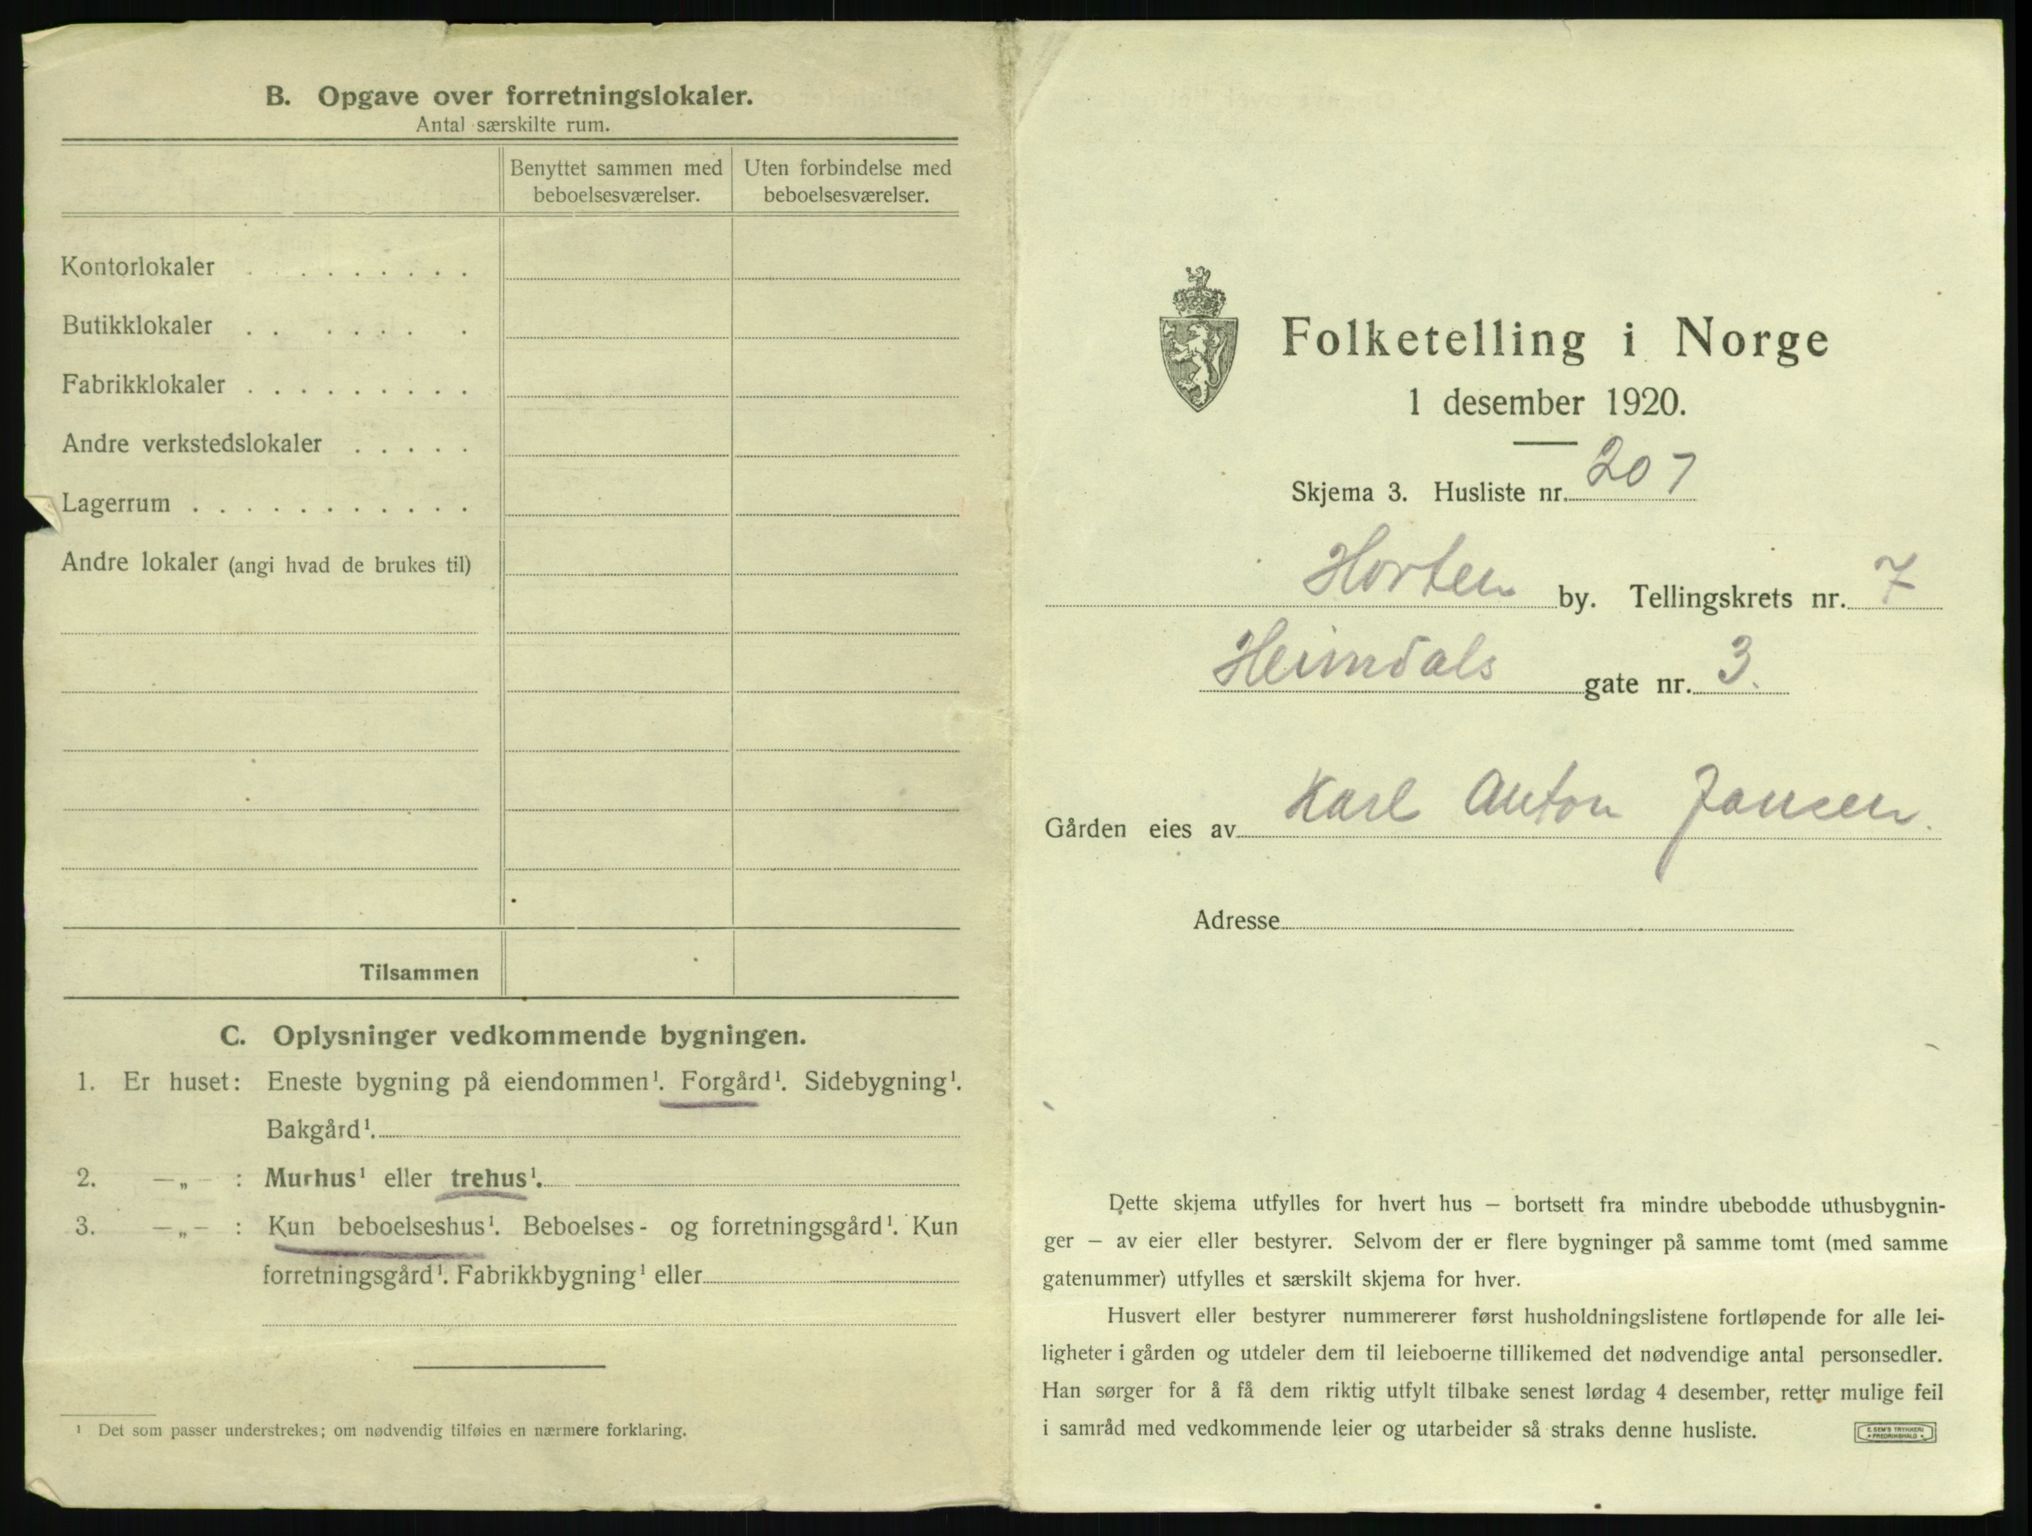 B. Opgave over forretningslokaler.
Antal særskilte rum.
Benyttet sammen med beboelsesværelser.
Uten forbindelse med beboelsesværelser.
Kontorlokaler . . . . . . . . .
Butikklokaler . . . . . . .
Fabrikklokaler . . . . . . . . .
Andre verkstedslokaler . . . . .
Lagerrum . . . . . . . . . . .
Andre lokaler (angi hvad de brukes til)
Tilsammen
C. Oplysninger vedkommende bygningen.
1. Er huset: Eneste bygning på eiendommen¹. Forgård¹. Sidebygning¹.
Bakgård¹.
2. —„— : Murhus¹ eller trehus¹.
3. —„— : Kun beboelseshus¹. Beboelses- og forretningsgård¹. Kun
forretningsgård¹. Fabrikkbygning¹ eller
¹ Det som passer understrekes; om nødvendig tilføies en nærmere forklaring.
Folketelling i Norge
1 desember 1920.
Skjema 3. Husliste nr. 207
Horten by. Tellingskrets nr. 7
Heimdals gate nr. 3.
Gården eies av Karl Anton Jansen.
Adresse
Dette skjema utfylles for hvert hus – bortsett fra mindre ubebodde uthusbygnin-
ger – av eier eller bestyrer. Selvom der er flere bygninger på samme tomt (med samme
gatenummer) utfylles et særskilt skjema for hver.
Husvert eller bestyrer nummererer først husholdningslistene fortløpende for alle lei-
ligheter i gården og utdeler dem til leieboerne tillikemed det nødvendige antal personsedler.
Han sørger for å få dem riktig utfylt tilbake senest lørdag 4 desember, retter mulige feil
i samråd med vedkommende leier og utarbeider så straks denne husliste.
E. SEM'S TRYKKERI
• FREDRIKSHALD •